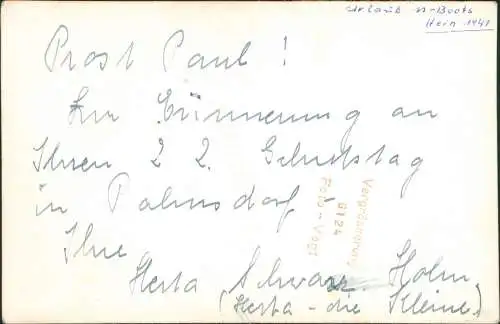 Urlaub U-Boots
Hein 1941
Prost Paul!
Zur Erinnerung an
Ihren 22. Geburtstag
in Palmsdorf -
Ihre
Herta Schwarz Holm
(Herta - die Kleine)
Vergrößerung
6124
Foto-Vogt